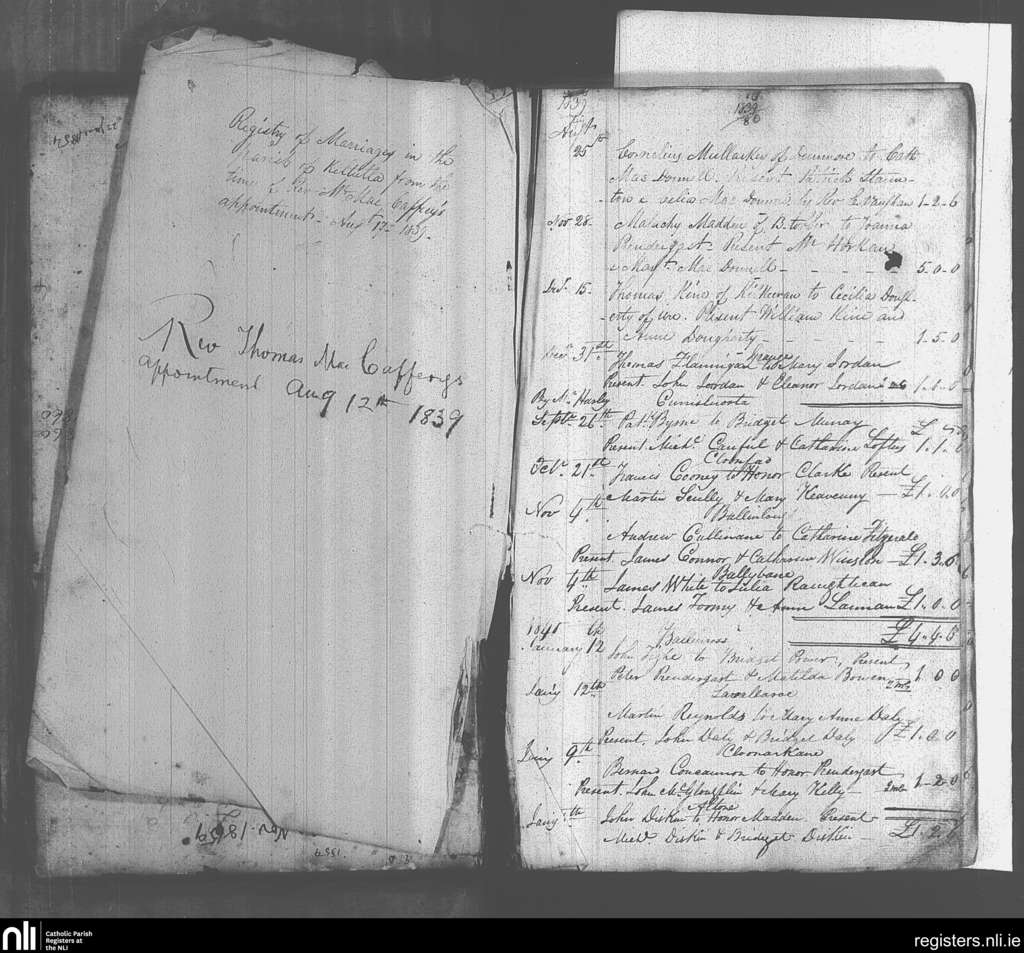 Registry of Marriages in the
Parish of from the
time of Rev Mr Mac Caffrey's
appointment - Augt 1839.
Rev Thomas Mac Cafferys
appointment Aug 12th 1839
Nov. 1859
1859
1839
1839
Augt
25th Cornelius Mullarkey of Dunmore to Cath
Mac Donnell. Present Patrick
& Celia Mac Donnell by Rev E. Vaughan 1-2-6
Nov 28 - Malachy Madden of to Joanna
Prendergast - Present Mr
& Margt. Mac Donnell - - - - - 5-0-0
Decr. 15 - Thomas Kine of to Cecilia Dough-
-erty of Present William Kine and
Anne Dougherty - - - - 1-5-0
Decr 31st Thomas Flannigan to Mary Jordan
Present John Jordan & Eleanor Jordan 1-0-0
By Mr Hanly
Septr. 26th Patk. Byrne to Bridget Murray £
Present Michl. & Catharine Loftus 1.1.
Cloonfad
Octr. 21st Francis Cooney to Honor Clarke Present
Martin Scully & Mary Heavenny - £1.0.0
Nov 4th
Andrew Cullinane to Catharine Fitzgerald
Present James Connor & Catharine Winston - £1.3.6
Ballybane
Nov 4th James White to Julia
Present. James & Ann £1.0.0
£4.4.6
184 January 12
John to Bridget Power, Present
Peter Prendergast & Matilda Bowen 1 0 0
Jany 12th
Martin Reynolds to Mary Anne Daly
Present, John Daly & Bridget Daly £1.0.0
Jany 9th Cloonarkane
Bernard Concannon to Honor Prendergast
Present. John McGloughlin & Mary Kelly - 1-2-0
Jany th John Diskin to Honor Madden Present
Michl. Diskin & Bridget Diskin - £1.2.6
nli
Catholic Parish
Registers at
the NLI
registers.nli.ie